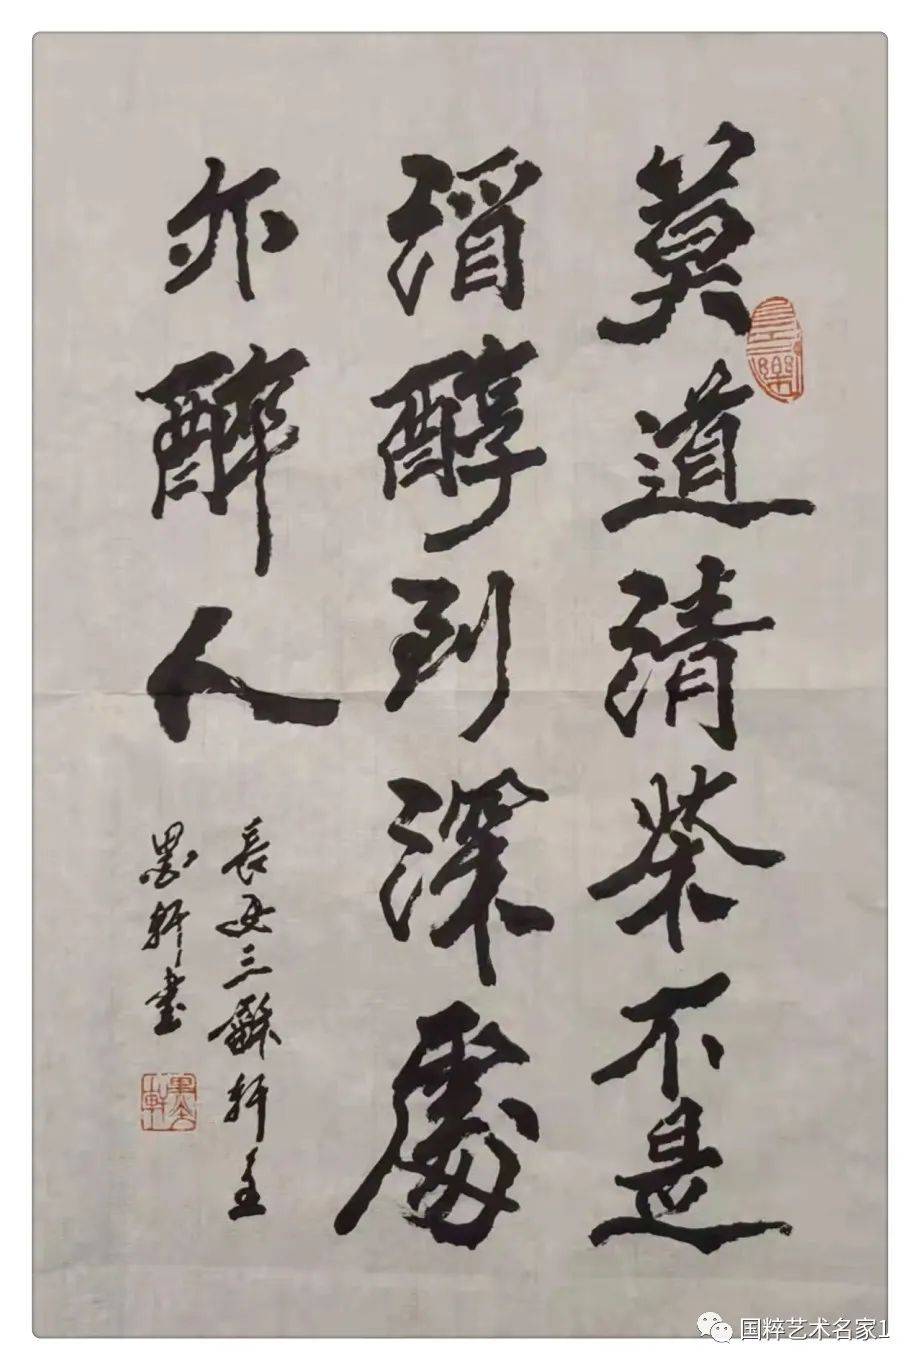 莫道清茶不是
酒醇到深處
亦醉人
長安三穌軒主
墨軒書
墨軒
国粹艺术名家1